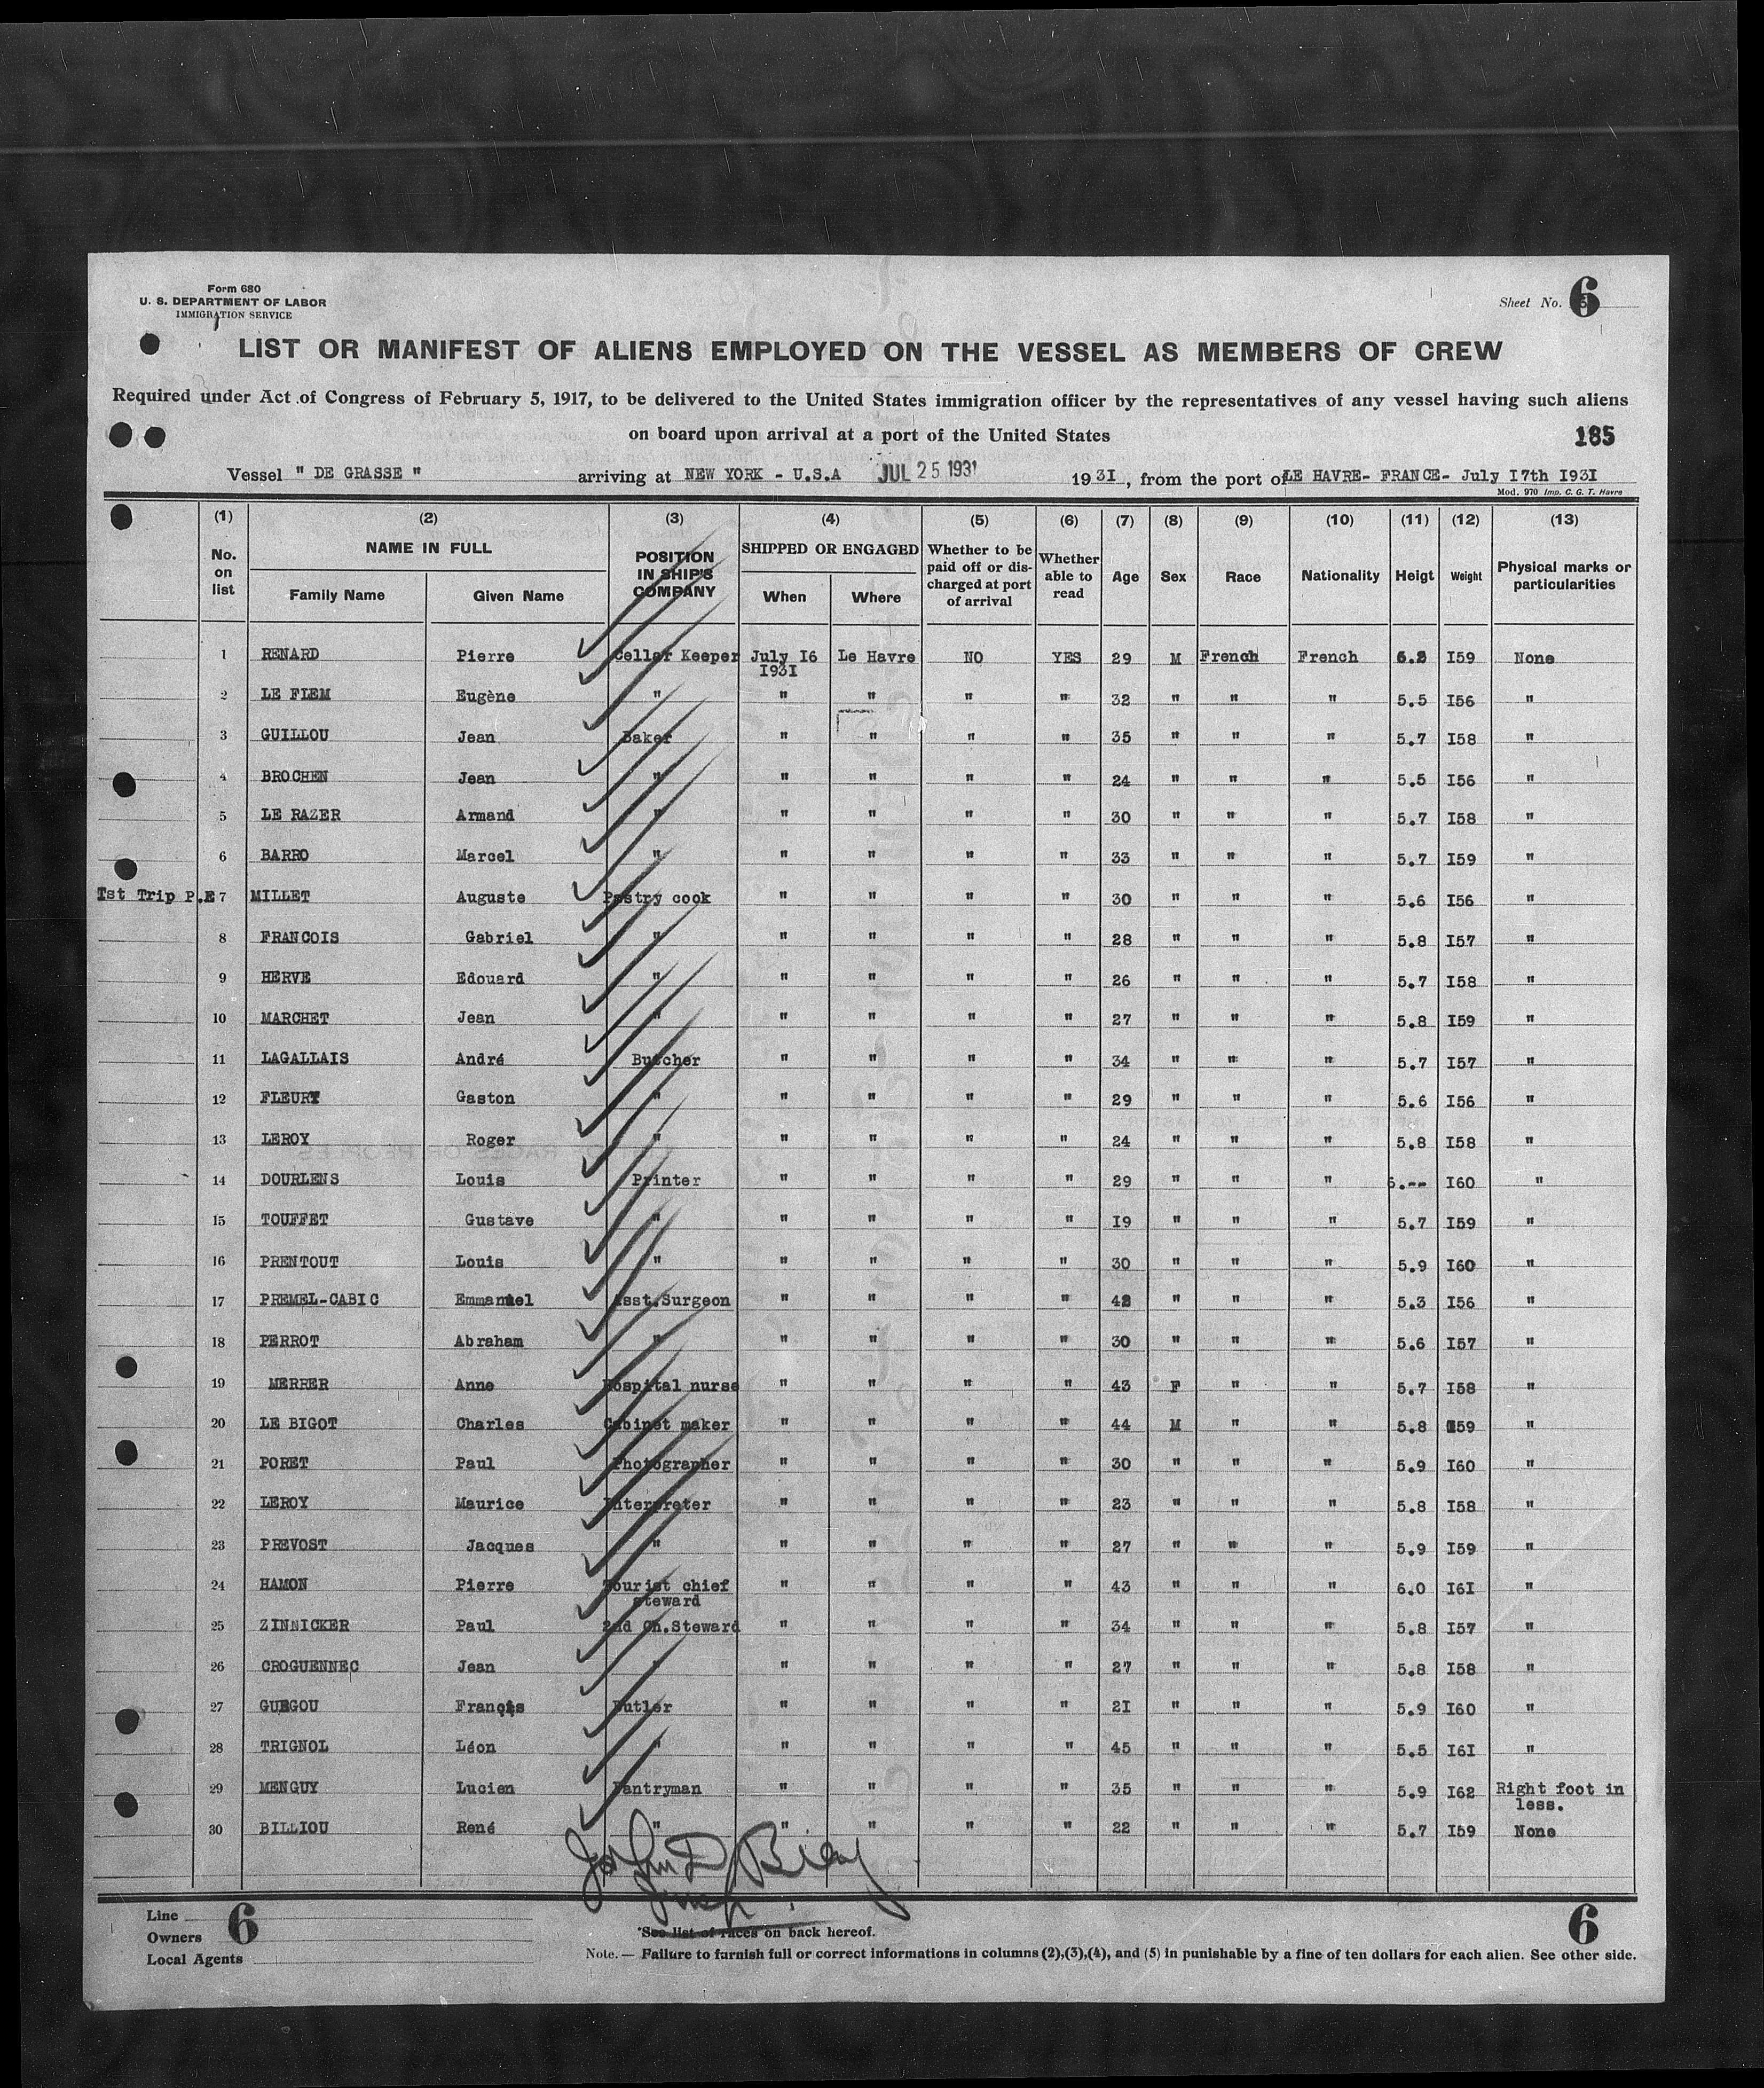 Form 680
U. S. DEPARTMENT OF LABOR
IMMIGRATION SERVICE
Sheet No. 6
LIST OR MANIFEST OF ALIENS EMPLOYED ON THE VESSEL AS MEMBERS OF CREW
Required under Act of Congress of February 5, 1917, to be delivered to the United States immigration officer by the representatives of any vessel having such aliens
on board upon arrival at a port of the United States
185
Vessel " DE GRASSE " arriving at NEW YORK - U.S.A JUL 25 1931 1931, from the port of LE HAVRE- FRANCE- July I7th I93I
Mod. 970 Imp. C. G. T. Havre
(1) (2) (3) (4) (5) (6) (7) (8) (9) (10) (11) (12) (13)
No. on list NAME IN FULL Family Name Given Name POSITION IN SHIP'S COMPANY SHIPPED OR ENGAGED When Where Whether to be paid off or discharged at port of arrival Whether able to read Age Sex Race Nationality Heigt Weight Physical marks or particularities
1 RENARD Pierre Cellar Keeper July I6 I93I Le Havre NO YES 29 M French French I59 None
2 LE FLEM Eugène " " " " " 32 " " " 5.5 I56 "
3 GUILLOU Jean Baker " " " " 35 " " " 5.7 I58 "
4 BROCHEN Jean " " " " " 24 " " " 5.5 I56 "
5 LE RAZER Armand " " " " " 30 " " " 5.7 I58 "
6 BARRO Marcel " " " " " 33 " " " 5.7 I59 "
Ist Trip P.E 7 MILLET Auguste Pastry cook " " " " 30 " " " 5.6 I56 "
8 FRANCOIS Gabriel " " " " " 28 " " " 5.8 I57 "
9 HERVE Edouard " " " " " 26 " " " 5.7 I58 "
10 MARCHET Jean " " " " " 27 " " " 5.8 I59 "
11 LAGALLAIS André Butcher " " " " 34 " " " 5.7 I57 "
12 FLEURY Gaston " " " " " 29 " " " 5.6 I56 "
13 LEROY Roger " " " " " 24 " " " 5.8 I58 "
14 DOURLENS Louis Printer " " " " 29 " " " 6.-- I60 "
15 TOUFFET Gustave " " " " " I9 " " " 5.7 I59 "
16 PRENTOUT Louis " " " " " 30 " " " 5.9 I60 "
17 PREMEL-CABIC Emmanuel Asst.Surgeon " " " " 42 " " " 5.3 I56 "
18 PERROT Abraham " " " " " 30 " " " 5.6 I57 "
19 MERRER Anne Hospital nurse " " " " 43 F " " 5.7 I58 "
20 LE BIGOT Charles Cabinet maker " " " " 44 M " " 5.8 I59 "
21 PORET Paul Photographer " " " " 30 " " " 5.9 I60 "
22 LEROY Maurice Interpreter " " " " 23 " " " 5.8 I58 "
23 PREVOST Jacques " " " " " 27 " " " 5.9 I59 "
24 HAMON Pierre Tourist chief steward " " " " 43 " " " 6.0 I6I "
25 ZINNICKER Paul 2nd Ch.Steward " " " " 34 " " " 5.8 I57 "
26 CROGUENNEC Jean " " " " " 27 " " " 5.8 I58 "
27 GUEGOU François Butler " " " " 2I " " " 5.9 I60 "
28 TRIGNOL Léon " " " " " 45 " " " 5.5 I6I "
29 MENGUY Lucien Pantryman " " " " 35 " " " 5.9 I62 Right foot in less.
30 BILLIOU René " " " " " 22 " " " 5.7 I59 None
John D
Line
Owners
Local Agents
6
6
*See list of races on back hereof.
Note. — Failure to furnish full or correct informations in columns (2),(3),(4), and (5) in punishable by a fine of ten dollars for each alien. See other side.